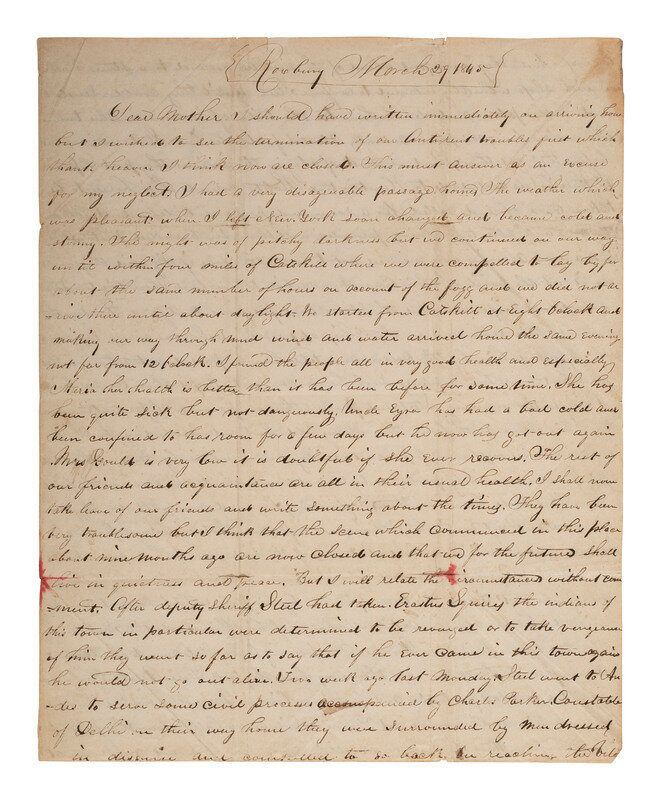 Roxbury March 29 1845
Dear Mother I should have written immediately on arriving home
but I wished to see the termination of our antirent troubles first which
thank heaven I think now are closed. This must answer as an excuse
for my neglect. I had a very disagreable passage home, The weather which
was pleasant when I left New York soon changed and became cold and
stormy. The night was of pitchy darkness but we continued on our way
until within four miles of Catskill where we were compelled to lay by for
about the same number of hours on account of the fogg and we did not ar
-rive there until about daylight. We started from Catskill at Eight oclock and
making our way through mud wind and water arrived home the same evening
not far from 12 oclock. I found the people all in very good health and especially
Maria her health is better than it has been before for some time. She has
been quite sick but not dangerously, Uncle Ezra has had a bad cold and
been confined to his room for a few days but he now has got out again
Mrs Gould is very low it is doubtful if she ever recovers. The rest of
our friends and acquaintances are all in their usual health. I shall now
take leave of our friends and write something about the times. They have been
very troublesome but I think that the scene which commenced in this place
about nine months ago are now closed and that we for the future shall
live in quietness and peace. But I will relate the circumstances without com
-ment. After deputy sheriff Steel had taken Erastus Squires the indians of
this town in particular were determined to be revenged or to take vengeance
of him they went so far as to say that if he ever came in this town again
he would not go out alive. Two week ago last Monday Steel went to An
-des to serve some civil processes accompanied by Charles Parker Constable
of Delhi on their way home they were surrounded by men dressed
in disguise and compelled to go back on reaching the